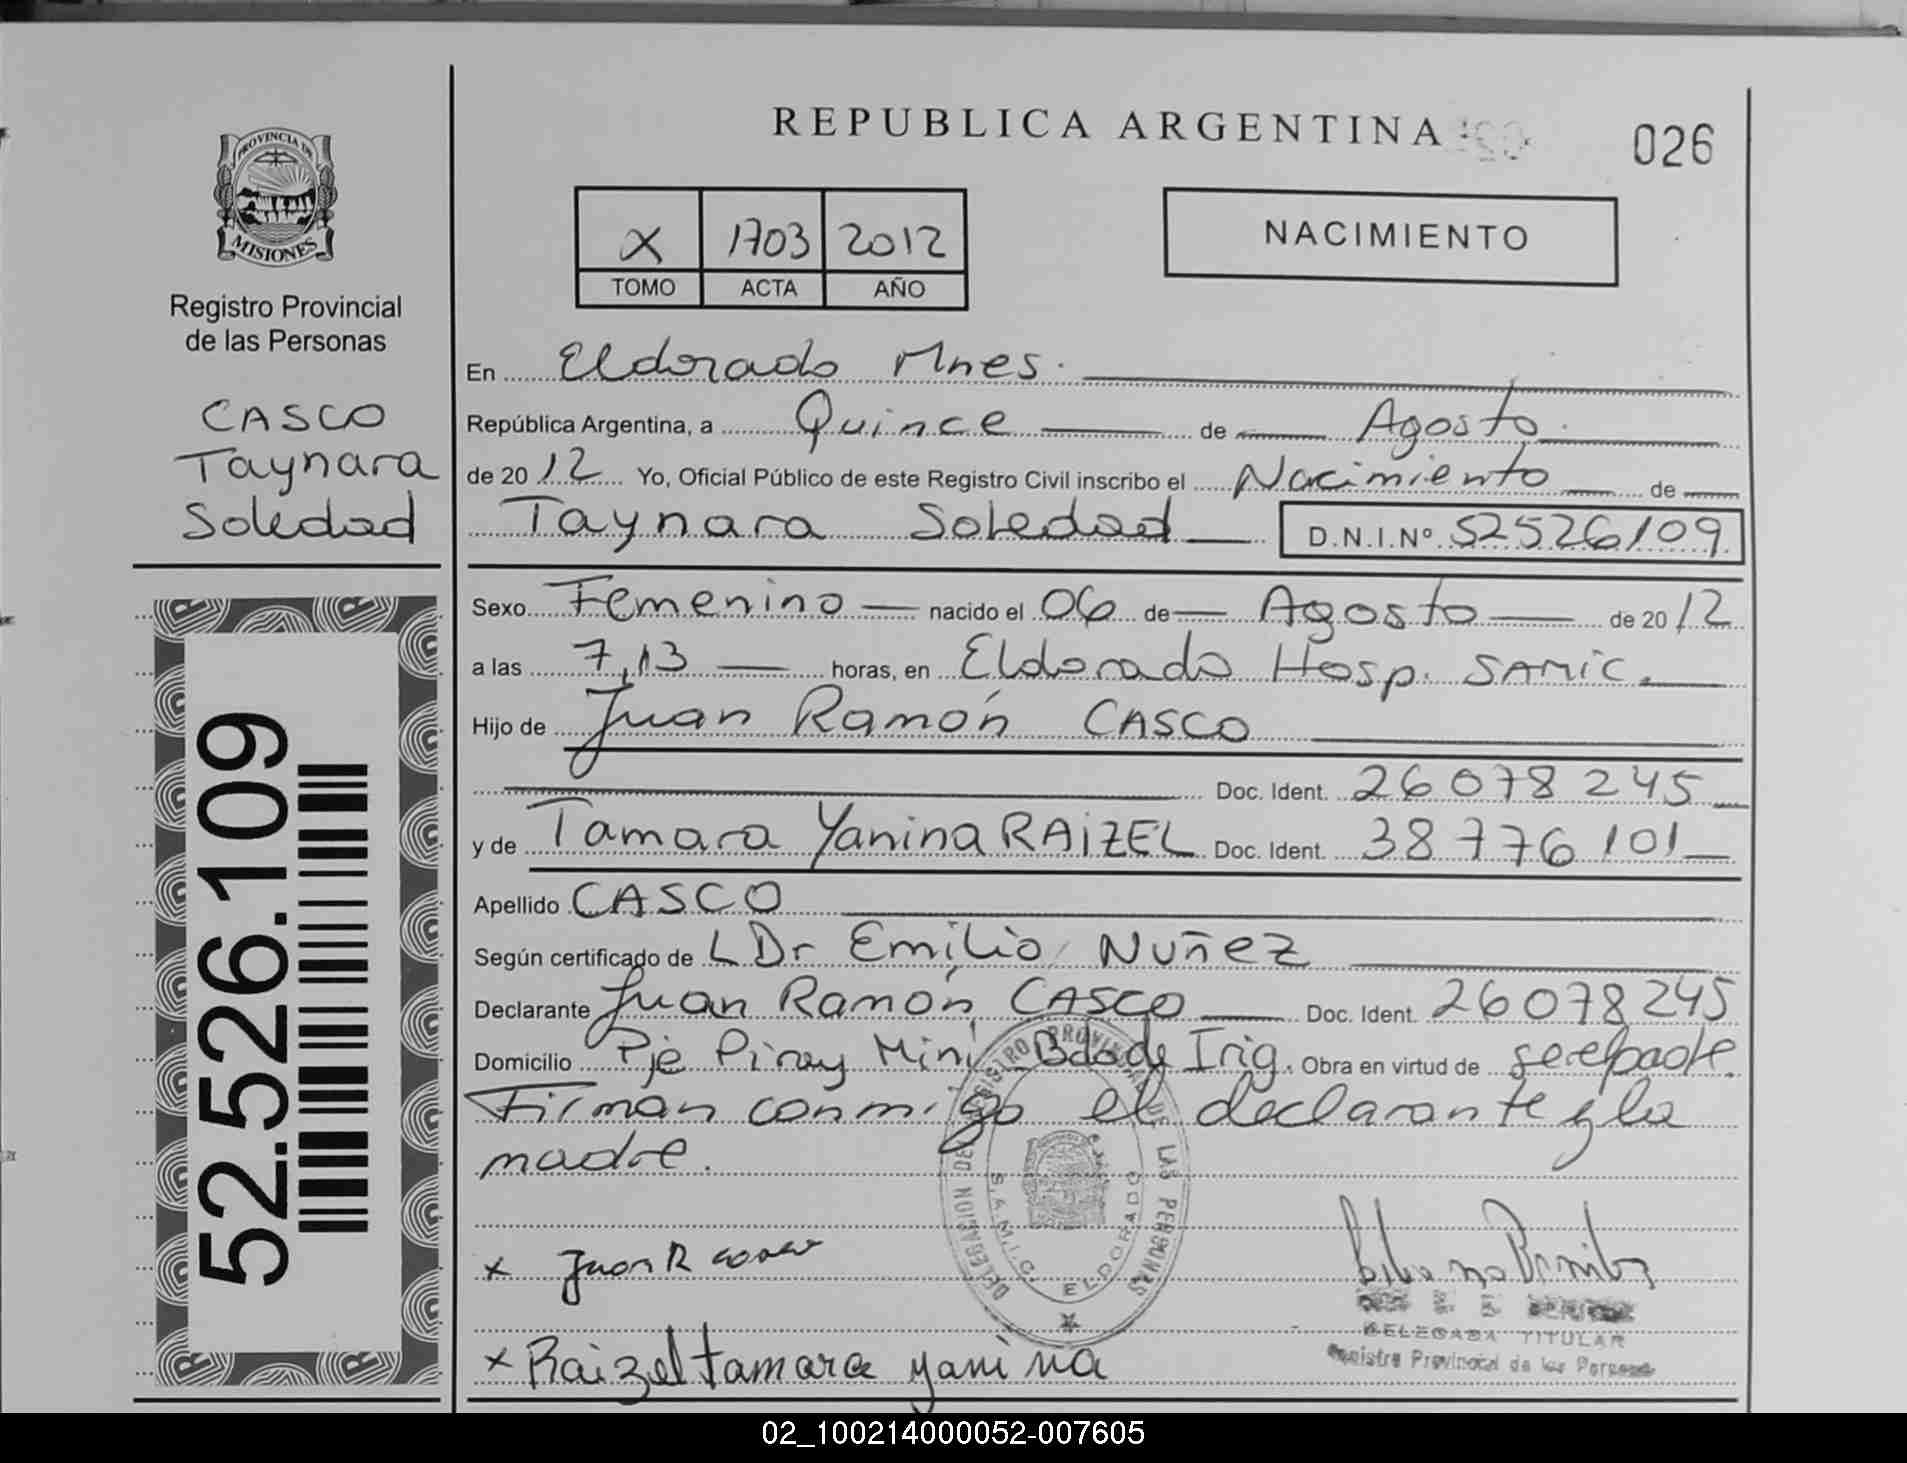 REPUBLICA ARGENTINA
026
PROVINCIA DE
MISIONES
Registro Provincial
de las Personas
CASCO
Taynara
Soledad
52.526.109
X 1703 2012
TOMO ACTA AÑO
NACIMIENTO
En Eldorado Mnes.
República Argentina, a Quince de Agosto
de 2012 Yo, Oficial Público de este Registro Civil inscribo el Nacimiento de
Taynara Soledad D.N.I.Nº 52526109
Sexo Femenino nacido el 06 de Agosto de 2012
a las 7,13 horas, en Eldorado Hosp. SAMIC.
Hijo de Juan Ramón CASCO
Doc. Ident. 26078245
y de Tamara Yanina RAIZEL Doc. Ident. 38776101
Apellido CASCO
Según certificado de L Dr Emilio Nuñez
Declarante Juan Ramón CASCO Doc. Ident. 26078245
Domicilio Pje Piray Mini Bdo de Irig. Obra en virtud de ser el padre.
Firman conmigo el declarante y la
madre.
DELEGACION DEL REGISTRO PROVINCIAL DE LAS PERSONAS
S.A.M.I.C. ELDORADO
x Juan R casco
DELEGADA TITULAR
Registro Provincial de las Personas
x Raizel tamara yanina
02_100214000052-007605